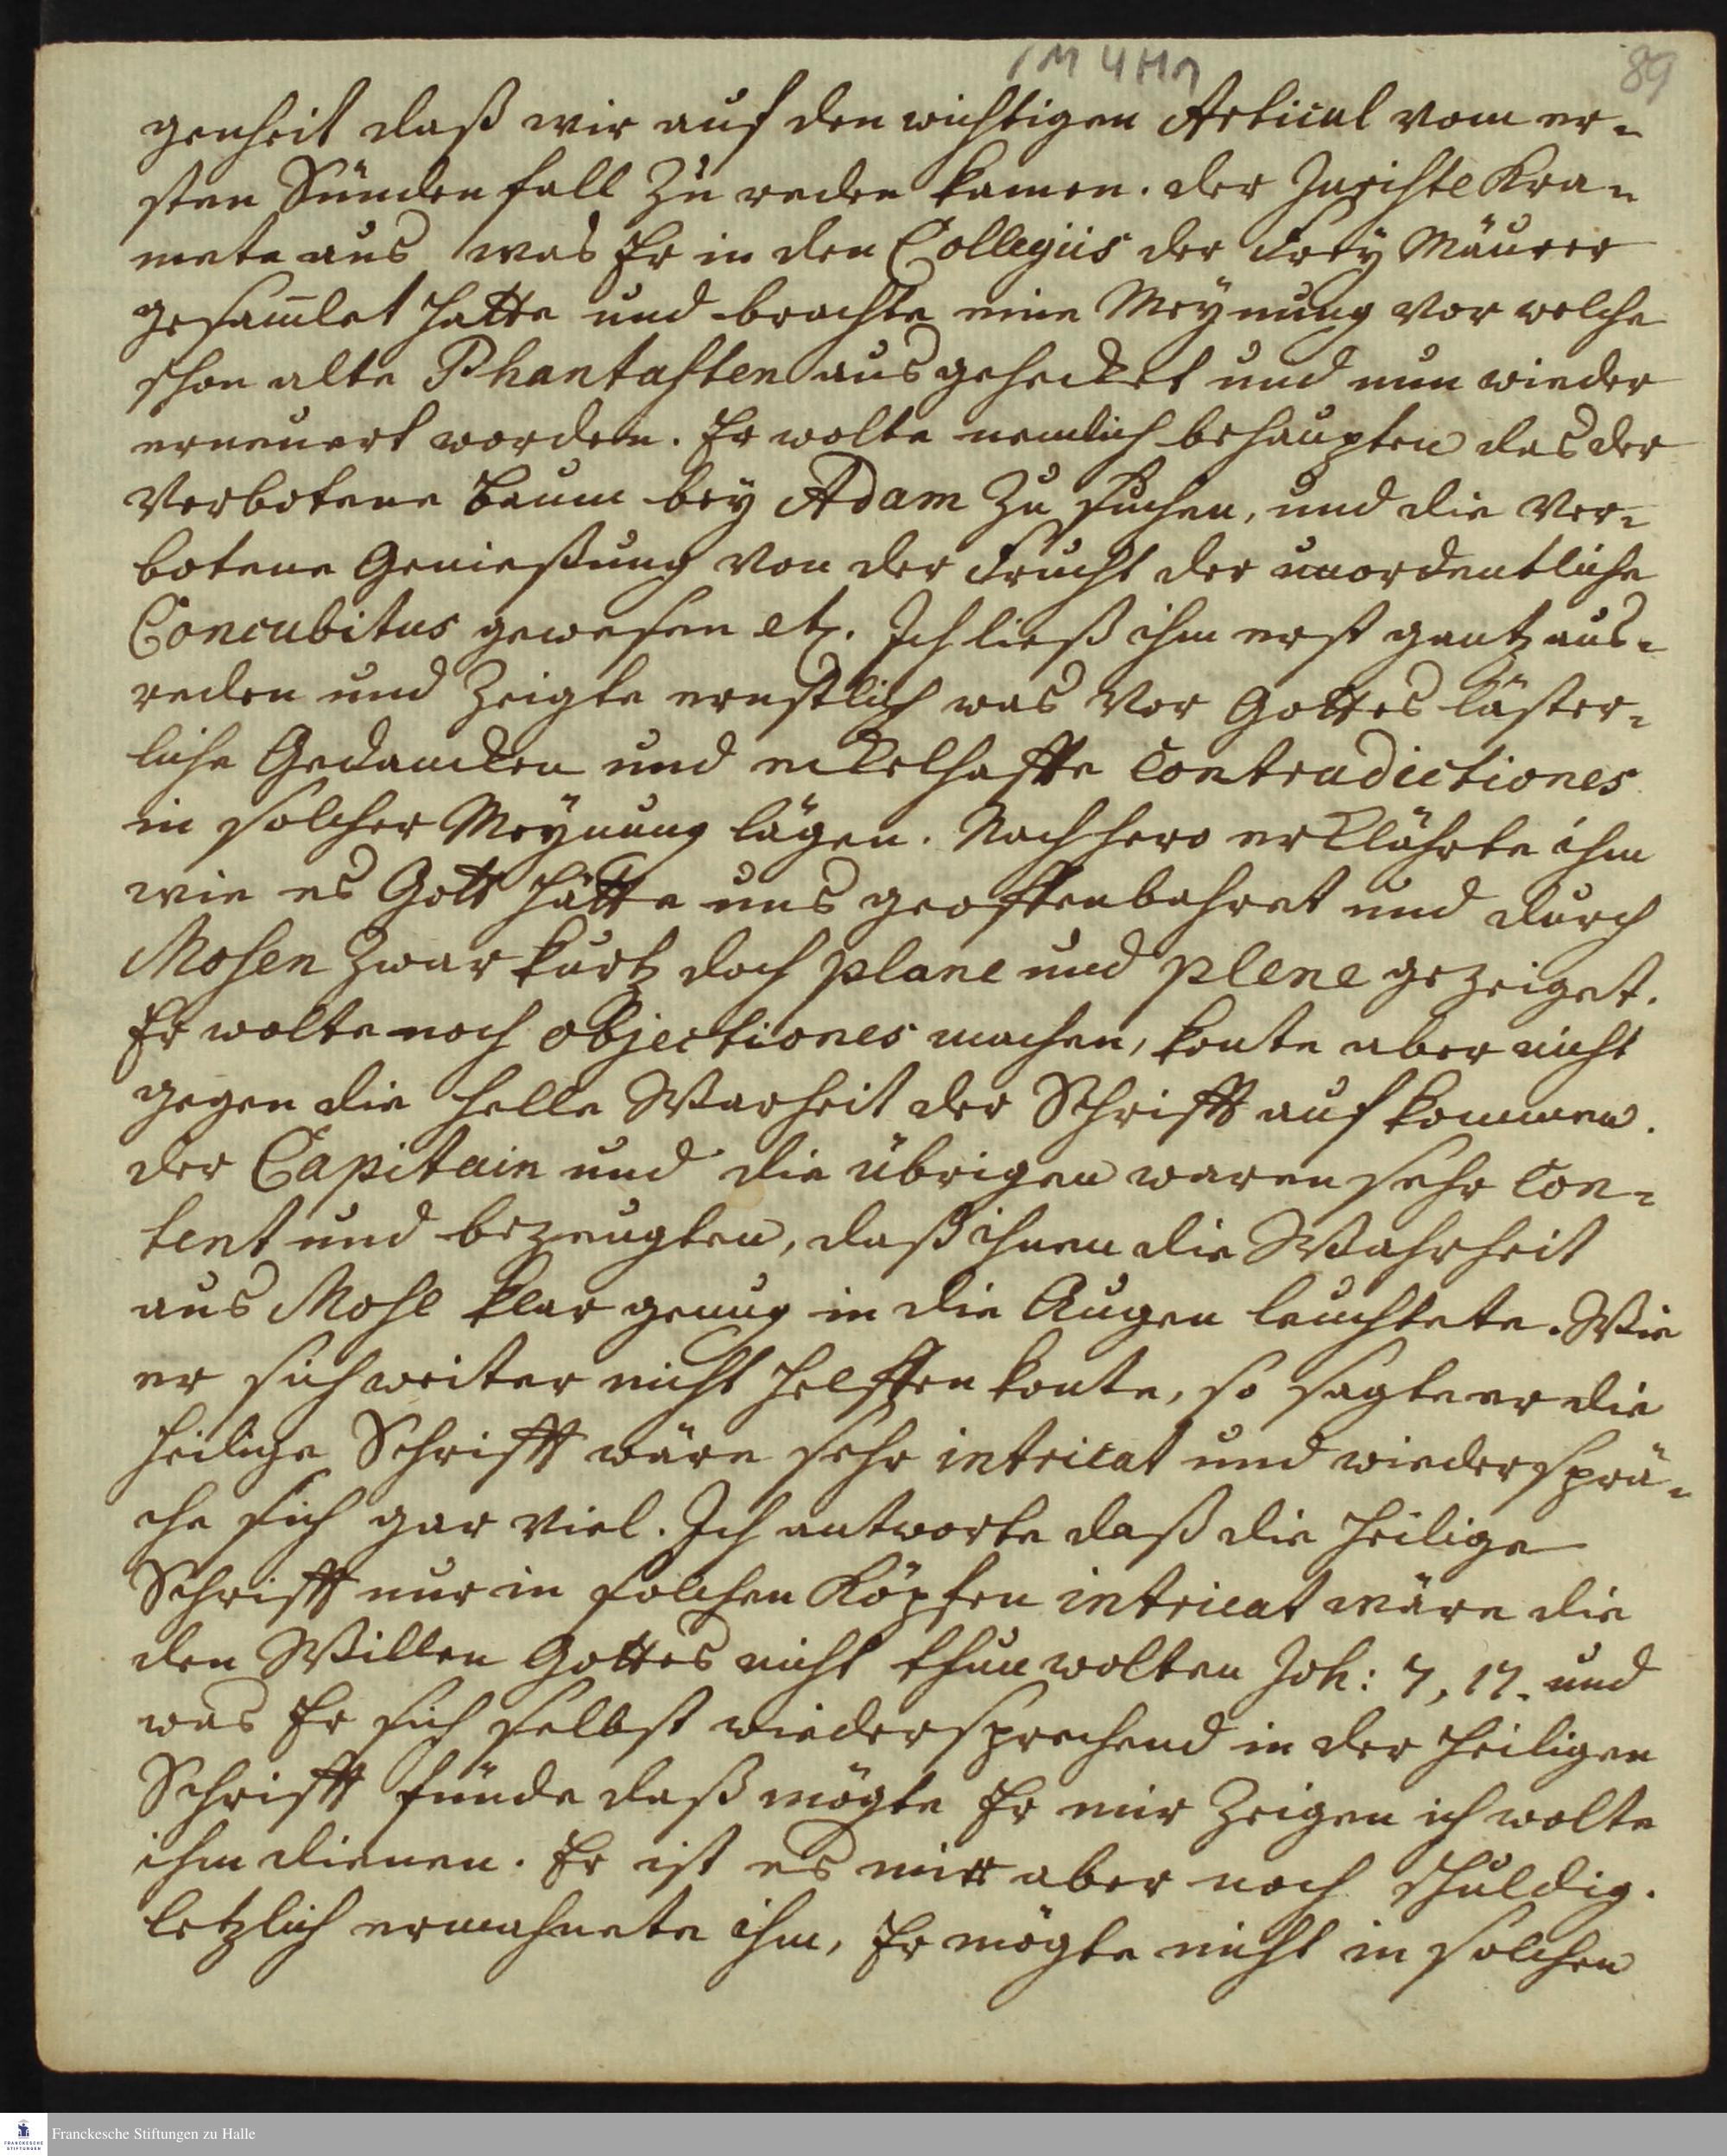 1 M 4 H 7
89
genheit daß wir auf den wichtigen Articul vom er-
sten Sündenfall zu reden kamen. der Juriste kra-
mete aus was Er in den Collegiis der Frey Mäurer
gesam̄let hatte und brachte eine Meynung vor welche
schon alte Phantasten ausgehecket und nun wieder
erneuert worden. Er wolte nemlich behaupten das der
verbotene Baum bey Adam zu suchen, und die ver-
botene Geniessung von der Frucht der unordentliche
Concubitus gewesen etc. Ich ließ ihm erst gantz aus-
reden und zeigte ernstlich was vor Gottes läster-
liche Gedancken und eckelhaffte Contradictiones
in solcher Meynung lägen. Nachhero erklährte ihm
wie es Gott hätte uns geoffenbahret und durch
Mosen zwar kurtz doch plane und plene gezeiget.
Er wolte noch objectiones machen, konte aber nicht
gegen die helle Warheit der Schrifft aufkommen.
der Capitain und die übrigen waren sehr Con-
tent und bezeugten, daß ihnen die Wahrheit
aus Mose klar genug in die Augen leuchtete. Wie
er sich weiter nicht helffen konte, so sagte er die
heilige Schrifft wäre sehr intricat und wiedersprä-
che sich gar viel. Ich antworte daß die heilige
Schrifft nur in solchen Köpfen intricat wäre die
den Willen Gottes nicht thun wolten Joh: 7, 17. und
was Er sich selbst wiedersprechend in der heiligen
Schrifft fünde daß mögte Er mir zeigen ich wolte
ihm dienen. Er ist es mir aber noch schuldig.
letzlich ermahnete ihm, Er mögte nicht in solchen
Franckesche Stiftungen zu Halle
FRANCKESCHE
STIFTUNGEN